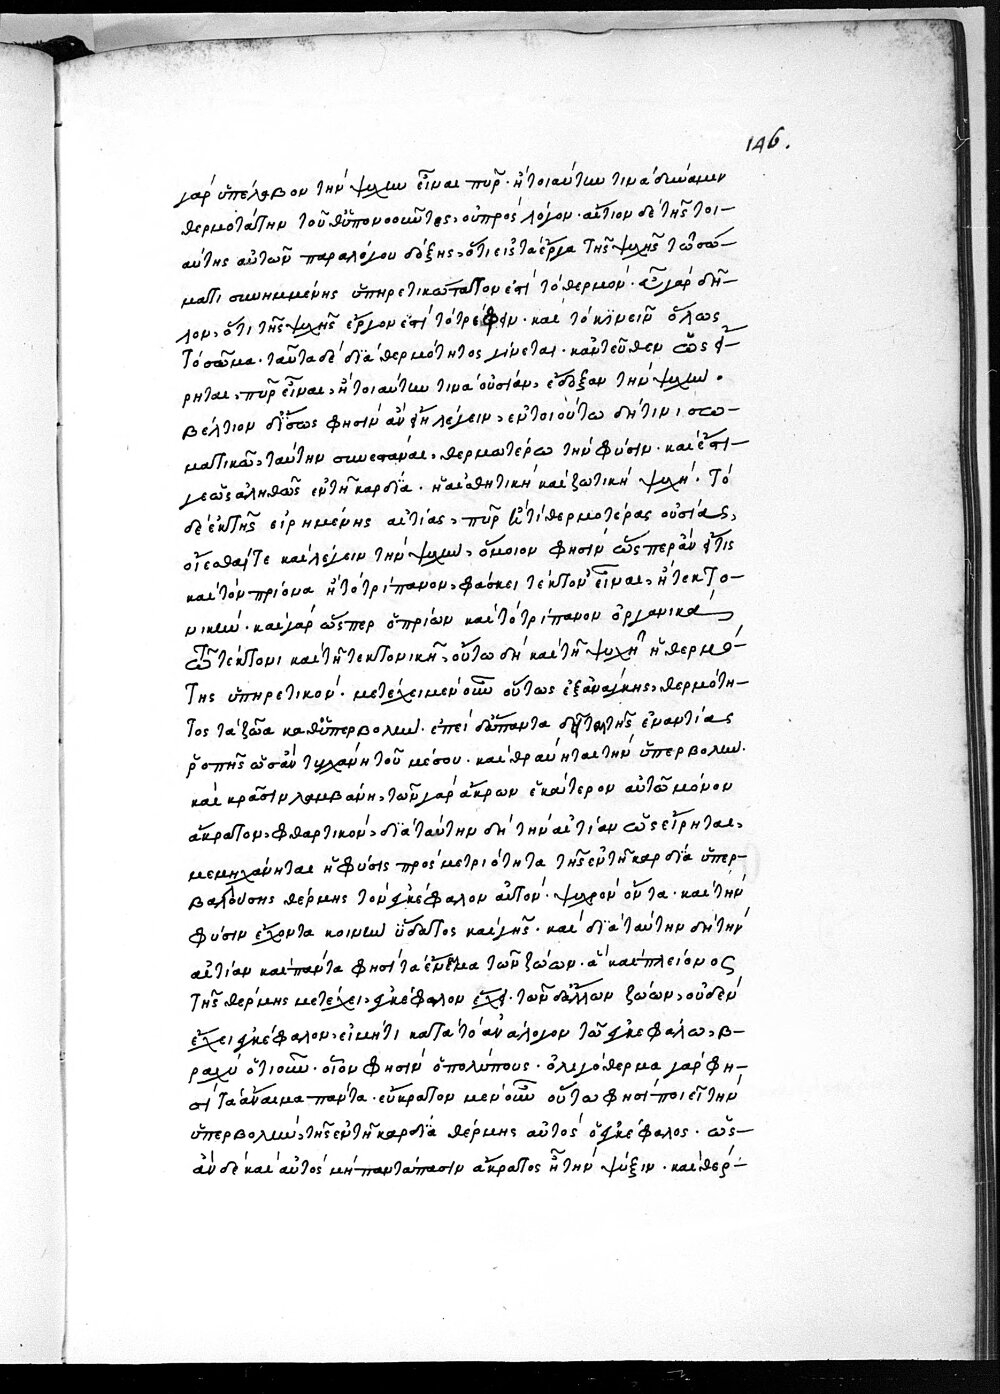 146.
γὰρ ὑπέλαβον τὴν ψυχὴν εἶναι πῦρ· ἢ τοιαύτην τινὰ δύναμιν
θερμοτάτην τοῦθ' ὑπονοοῦντες, οὐ πρὸς λόγον· αἴτιον δὲ τῆς τοι-
αύτης αὐτῶν παραλόγου δόξης, ὅτι εἰς τὰ ἔργα τῆς ψυχῆς τῶ σώ-
ματι συνημμένης ὑπηρετικώτατον ἐστὶ τὸ θερμόν· εὖ γὰρ δῆ-
λον, ὅτι τῆς ψυχῆς ἔργον ἐστὶ τὸ τρέφειν· καὶ τὸ κινεῖν ὅλως
τὸ σῶμα· ταῦτα δὲ διὰ θερμότητος γίνεται· κἀντεῦθεν ὡς εἴ-
ρηται, πῦρ εἶναι, ἢ τοιαύτην τινὰ οὐσίαν, ἔδοξαν τὴν ψυχήν.
βέλτιον δ' ἴσως φησὶν ἂν εἴη λέγειν, ἐν τοιούτω δή τινι σω-
ματικῶ, ταύτην συνεστάναι, θερμωτέρω τὴν φύσιν· καὶ ἔστι
γε ὡς ἀληθῶς ἐν τῆ καρδία· ἡ αἰσθητικὴ καὶ ζωτικὴ ψυχή· τὸ
δὲ ἐκ τῆς εἰρημένης αἰτίας, πῦρ ἢ τι θερμοτέρας οὐσίας,
οἴεσθαί τε καὶ λέγειν τὴν ψυχὴν, ὅμοιον φησὶν ὥσπερ ἂν εἴ τις
καὶ τὸν πρίονα ἢ τὸ τρύπανον, φάσκει τέκτον' εἶναι, ἢ τεκτο-
νικήν· καὶ γὰρ ὥσπερ ὁ πρίων καὶ τὸ τρύπανον ὀργανικὰ
τῶ τέκτονι καὶ τῆ τεκτονικῆ, οὕτω δὴ καὶ τῆ ψυχῆ ἡ θερμό-
της ὑπηρετικόν· μετέχει μὲν οὖν οὕτως ἐξ ἀνάγκης, θερμότη-
τος τὰ ζῶα καθ' ὑπερβολήν· ἐπεὶ δ' ἅπαντα δεῖται τῆς ἐναντίας
ῥοπῆς ὡς ἂν τυγχάνη τοῦ μέσου· καὶ θραύηται τὴν ὑπερβολήν·
καὶ κρᾶσιν λαμβάνη, τῶν γὰρ ἄκρων ἑκάτερον αὐτῶ μόνον
ἄκρατον, φθαρτικόν, διὰ ταύτην δὴ τὴν αἰτίαν ὡς εἴρηται,
μεμηχάνηται ἡ φύσις πρὸς μετριότητα τῆς ἐν τῆ καρδία ὑπερ-
βαλούσης θέρμης τὸν ἐγκέφαλον αἴτον· ψυχρὸν ὄντα· καὶ τὴν
φύσιν ἔχοντα κοινὴν ὕδατος καὶ γῆς· καὶ διὰ ταύτην δὴ τὴν
αἰτίαν καὶ πάντα φησὶ τὰ ἔναιμα τῶν ζώων· ἃ καὶ πλείονος
τῆς θέρμης μετέχει, ἐγκέφαλον ἔχει· τῶν δ' ἄλλων ζώων, οὐδὲν
ἔχει ἐγκέφαλον, εἰ μή τι κατὰ τὸ ἀνάλογον τῶ ἐγκεφάλω, β-
ραχύ ὁτιοῦν· οἷον φησὶν ὁ πολύπους· ὀλιγόθερμα γὰρ φη-
σὶ τὰ ἄναιμα πάντα· εὔκρατον μὲν οὖν οὕτω φησὶ ποιεῖ τὴν
ὑπερβολὴν, τῆς ἐν τῆ καρδία θέρμης αὐτὸς ὁ ἐγκέφαλος· ὡς
ἂν δὲ καὶ αὐτὸς μὴ παντάπασιν ἄκρατος ἦ τὴν ψύξιν· καὶ θερ-